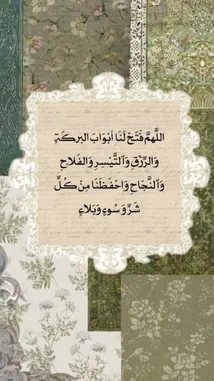 اللَّهمَّ فَتَحْ لَنَا أَبْوَابَ البركَةِ
وَالرِّزْقِ وَالتَّيْسِيرِ وَالفَلَاحِ
وَالنَّجَاحِ وَاحْفَظْنَا مِنْ كُلِّ
شَرٍّ وَسُوءٍ وَبَلَاءٍ